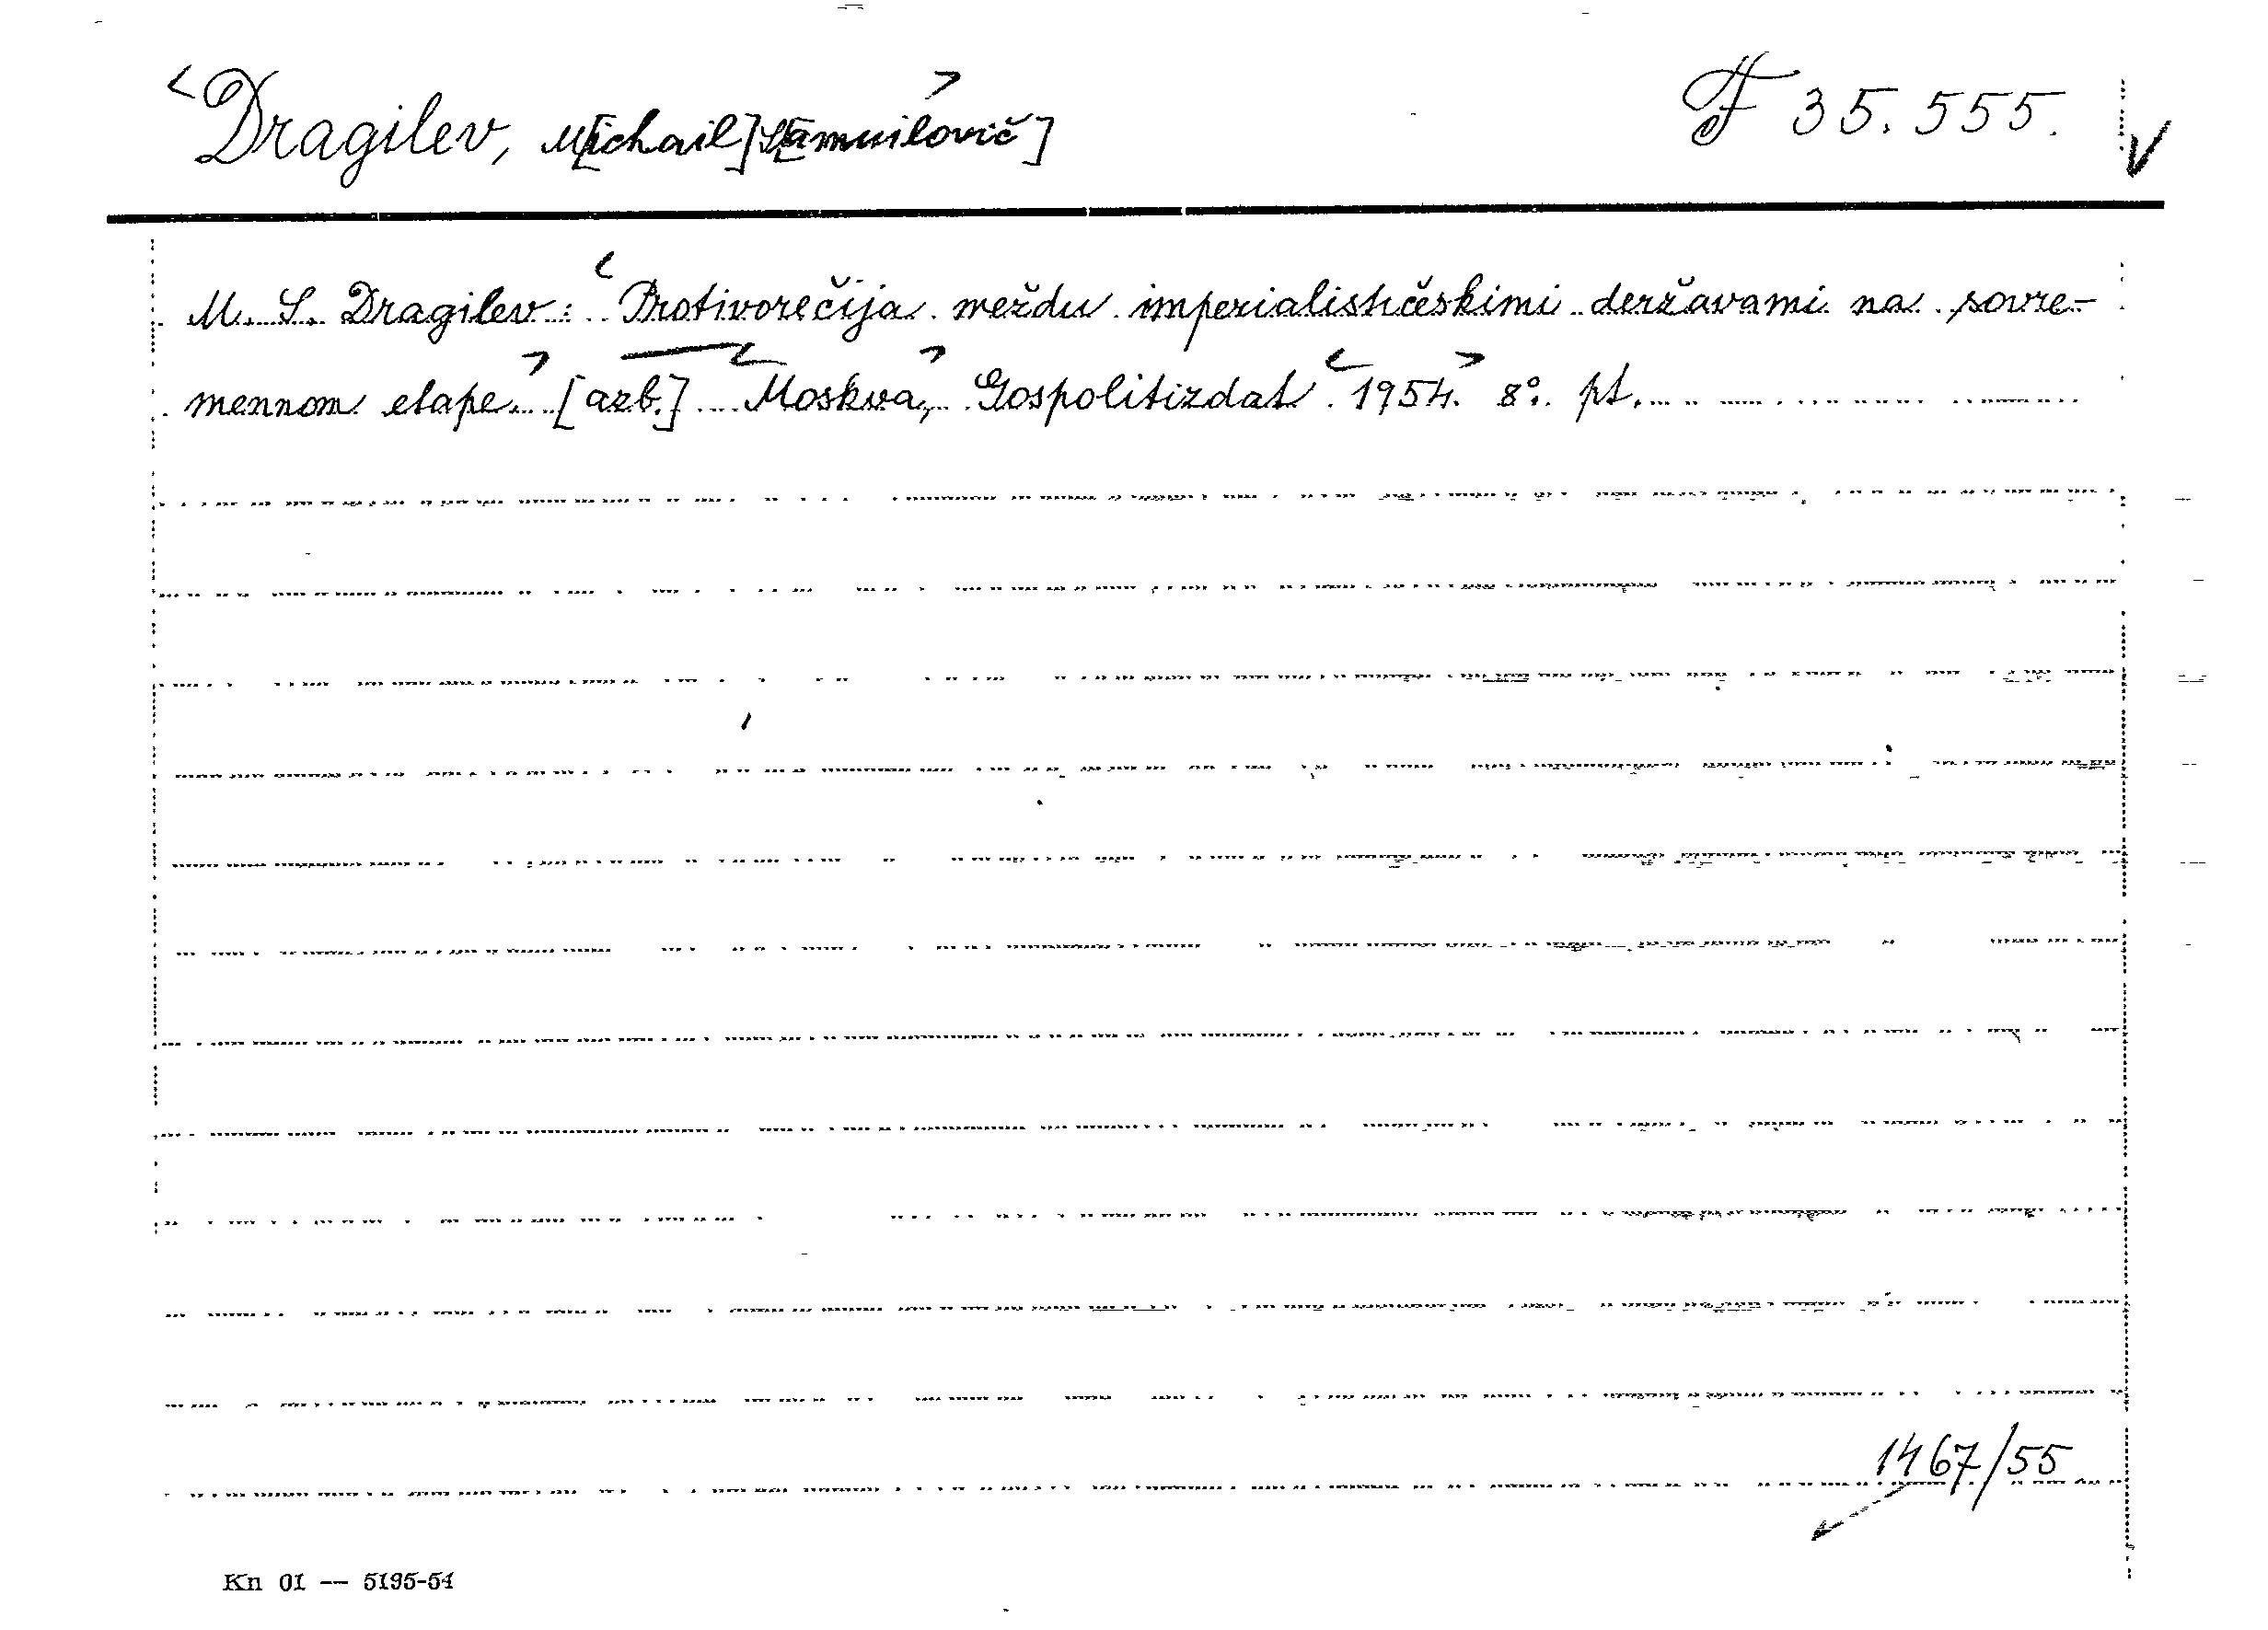 <Dragilev, M[ichail] S[amuilovič]> F 35.555. V
M. S. Dragilev: <Protivorečija meždu imperialističeskimi deržavami na sovre-
mennom etape.> [azb.] <Moskva,> Gospolitizdat <1954.> 8°. pt.
1467/55
Kn 01 — 5195-54